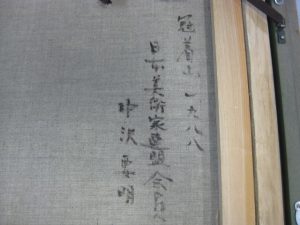 冠着山 一九八八
日本美術家連盟会員
中沢 明